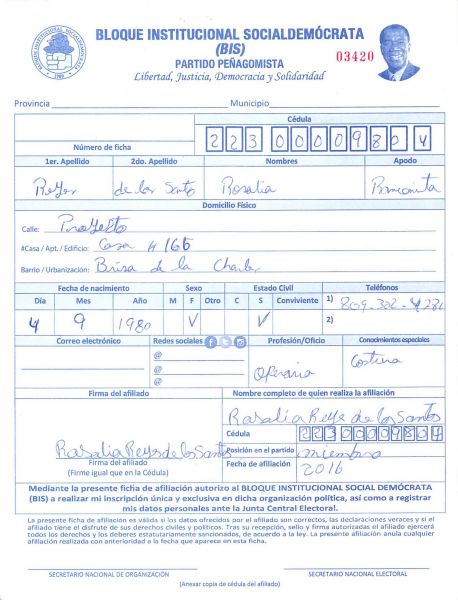 BLOQUE INSTITUCIONAL SOCIALDEMÓCRATA
(BIS)
PARTIDO PEÑAGOMISTA
Libertad, Justicia, Democracia y Solidaridad
03420
Provincia Municipio
Cédula
Número de ficha 2 2 3 0 0 0 0 9 8 0 4
1er. Apellido 2do. Apellido Nombres Apodo
Reyes de los Santo Rosalia
Domicilio Físico
Calle: Proyecto
#Casa / Apt. / Edificio: Casa # 166
Barrio / Urbanización: Brisa de la
Fecha de nacimiento Sexo Estado Civil Teléfonos
Día Mes Año M F Otro C S Conviviente 1) 809-302-
4 9 1980 V V 2)
Correo electrónico Redes sociales Profesión/Oficio Conocimientos especiales
@
@
@
Operaria Costura
Firma del afiliado Nombre completo de quien realiza la afiliación
Rosalia Reyes de los Santos
Cédula
2 2 3 0 0 0 0 9 8 0 4
Rosalia Reyes de los Santo
Posición en el partido miembro
Firma del afiliado
(Firme igual que en la Cédula)
Fecha de afiliación 2016
Mediante la presente ficha de afiliación autorizo al BLOQUE INSTITUCIONAL SOCIAL DEMÓCRATA
(BIS) a realizar mi inscripción única y exclusiva en dicha organización política, así como a registrar
mis datos personales ante la Junta Central Electoral.
La presente ficha de afiliación es válida si los datos ofrecidos por el afiliado son correctos, las declaraciones veraces y si el
afiliado tiene el disfrute de sus derechos civiles y políticos. Tras su recepción, sello y firma autorizadas el afiliado ejercerá
todos los derechos y los deberes estatutariamente sancionados, de acuerdo a la ley. La presente afiliación anula cualquier
afiliación realizada con anterioridad a la fecha que aparece en esta ficha.
SECRETARIO NACIONAL DE ORGANIZACIÓN SECRETARIO NACIONAL ELECTORAL
(Anexar copia de cédula del afiliado)